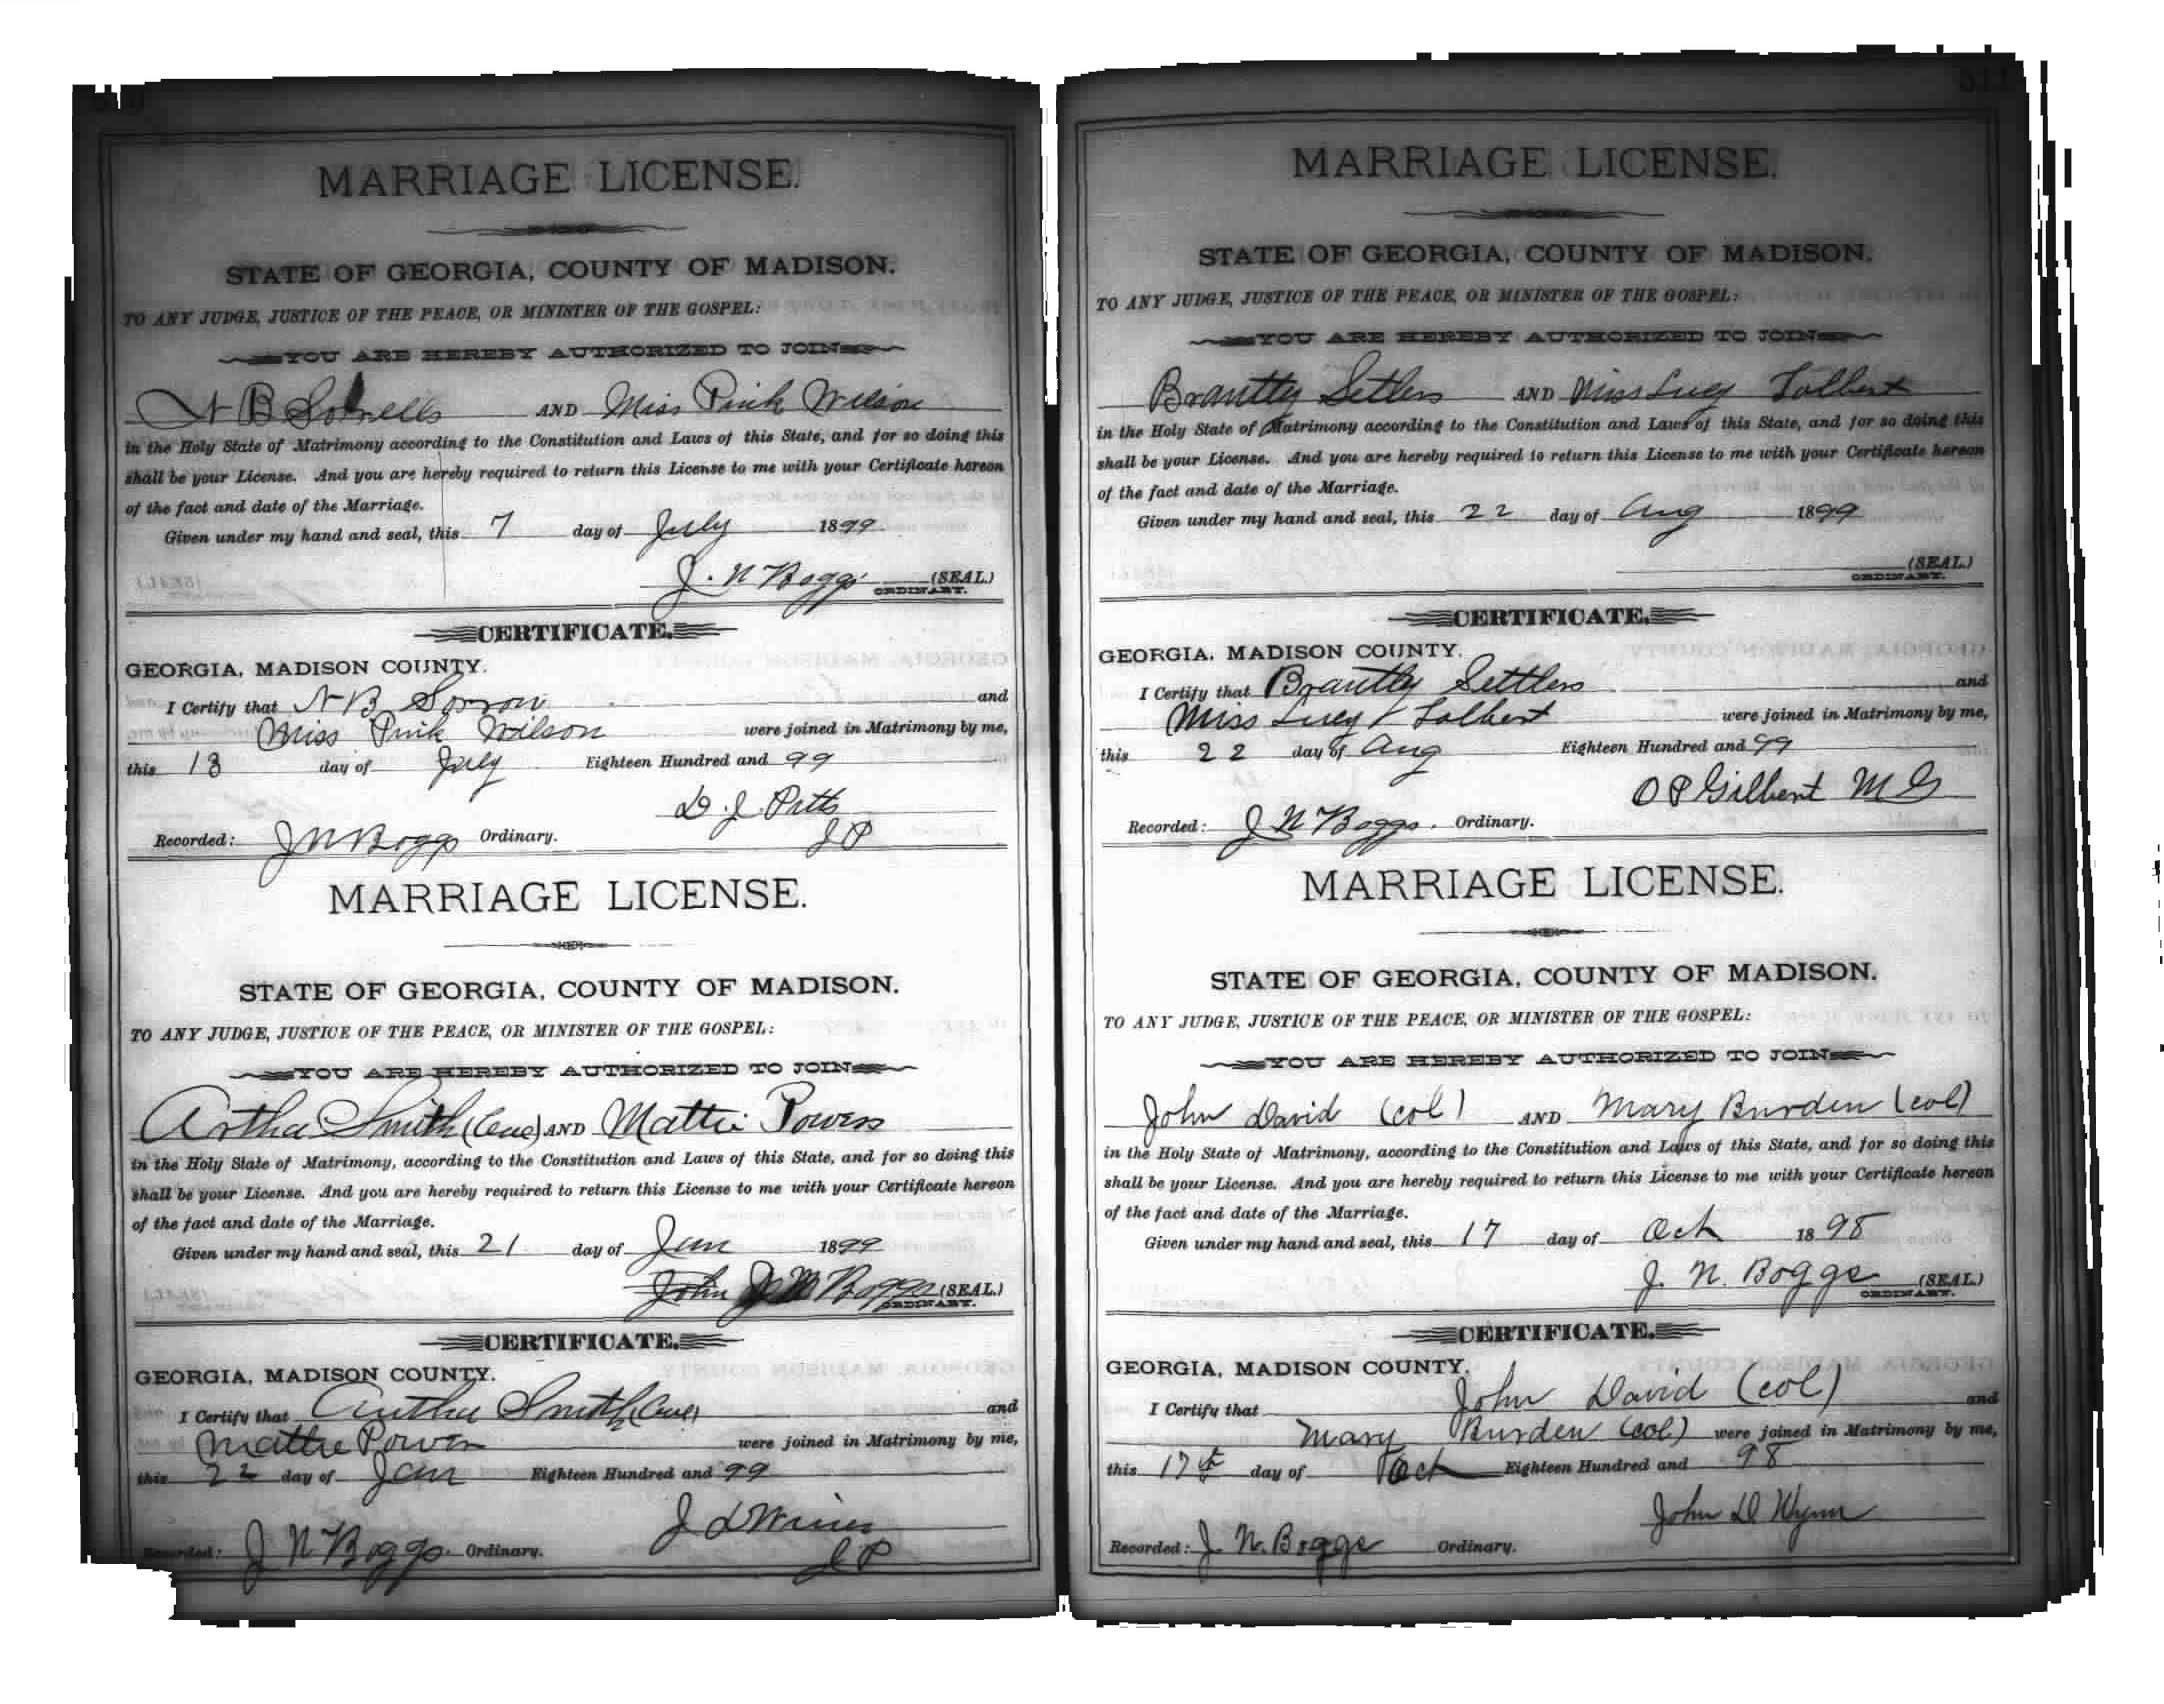 MARRIAGE LICENSE.
STATE OF GEORGIA, COUNTY OF MADISON.
TO ANY JUDGE, JUSTICE OF THE PEACE, OR MINISTER OF THE GOSPEL:
YOU ARE HEREBY AUTHORIZED TO JOIN
N B Sorrells AND Miss Pink Wilson
in the Holy State of Matrimony according to the Constitution and Laws of this State, and for so doing this
shall be your License. And you are hereby required to return this License to me with your Certificate hereon
of the fact and date of the Marriage.
Given under my hand and seal, this 7 day of July 1899
J. N Boggs (SEAL.)
ORDINARY.
CERTIFICATE.
GEORGIA, MADISON COUNTY.
I Certify that N B Sorrow and
Miss Pink Wilson were joined in Matrimony by me,
this 13 day of July Eighteen Hundred and 99
D. J. Pitts
Recorded: J N Boggs Ordinary. J P
MARRIAGE LICENSE.
STATE OF GEORGIA, COUNTY OF MADISON.
TO ANY JUDGE, JUSTICE OF THE PEACE, OR MINISTER OF THE GOSPEL:
YOU ARE HEREBY AUTHORIZED TO JOIN
Artha Smith AND Mattie Powers
in the Holy State of Matrimony, according to the Constitution and Laws of this State, and for so doing this
shall be your License. And you are hereby required to return this License to me with your Certificate hereon
of the fact and date of the Marriage.
Given under my hand and seal, this 21 day of Jan 1899
John Boggs (SEAL.)
ORDINARY.
CERTIFICATE.
GEORGIA, MADISON COUNTY.
I Certify that Artha Smith and
Mattie Power were joined in Matrimony by me,
this 22 day of Jan Eighteen Hundred and 99
J L
Recorded: J N Boggs Ordinary. J P
MARRIAGE LICENSE.
STATE OF GEORGIA, COUNTY OF MADISON.
TO ANY JUDGE, JUSTICE OF THE PEACE, OR MINISTER OF THE GOSPEL:
YOU ARE HEREBY AUTHORIZED TO JOIN
Brantly Setlers AND Miss Lucy Tolbert
in the Holy State of Matrimony according to the Constitution and Laws of this State, and for so doing this
shall be your License. And you are hereby required to return this License to me with your Certificate hereon
of the fact and date of the Marriage.
Given under my hand and seal, this 22 day of Aug 1899
(SEAL.)
ORDINARY.
CERTIFICATE.
GEORGIA, MADISON COUNTY.
I Certify that Brantly Settlers and
Miss Lucy Tolbert were joined in Matrimony by me,
this 22 day of Aug Eighteen Hundred and 99
O P Gilbert M G
Recorded: J N Boggs. Ordinary.
MARRIAGE LICENSE.
STATE OF GEORGIA, COUNTY OF MADISON.
TO ANY JUDGE, JUSTICE OF THE PEACE, OR MINISTER OF THE GOSPEL:
YOU ARE HEREBY AUTHORIZED TO JOIN
John David (col) AND Mary Burden (col)
in the Holy State of Matrimony, according to the Constitution and Laws of this State, and for so doing this
shall be your License. And you are hereby required to return this License to me with your Certificate hereon
of the fact and date of the Marriage.
Given under my hand and seal, this 17 day of Oct 1898
J. N. Boggs (SEAL.)
ORDINARY.
CERTIFICATE.
GEORGIA, MADISON COUNTY.
I Certify that John David (col) and
Mary Burden (col) were joined in Matrimony by me,
this 17th day of Oct Eighteen Hundred and 98
John D Wynn
Recorded: J. N. Boggs Ordinary.